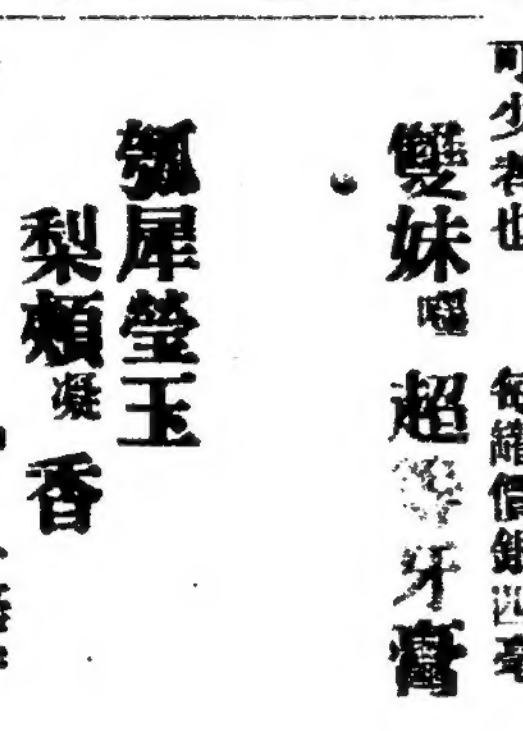 可少者也 每罇價銀四毫
雙妹嚜 超等牙膏
瓠犀瑩玉
梨頰凝香